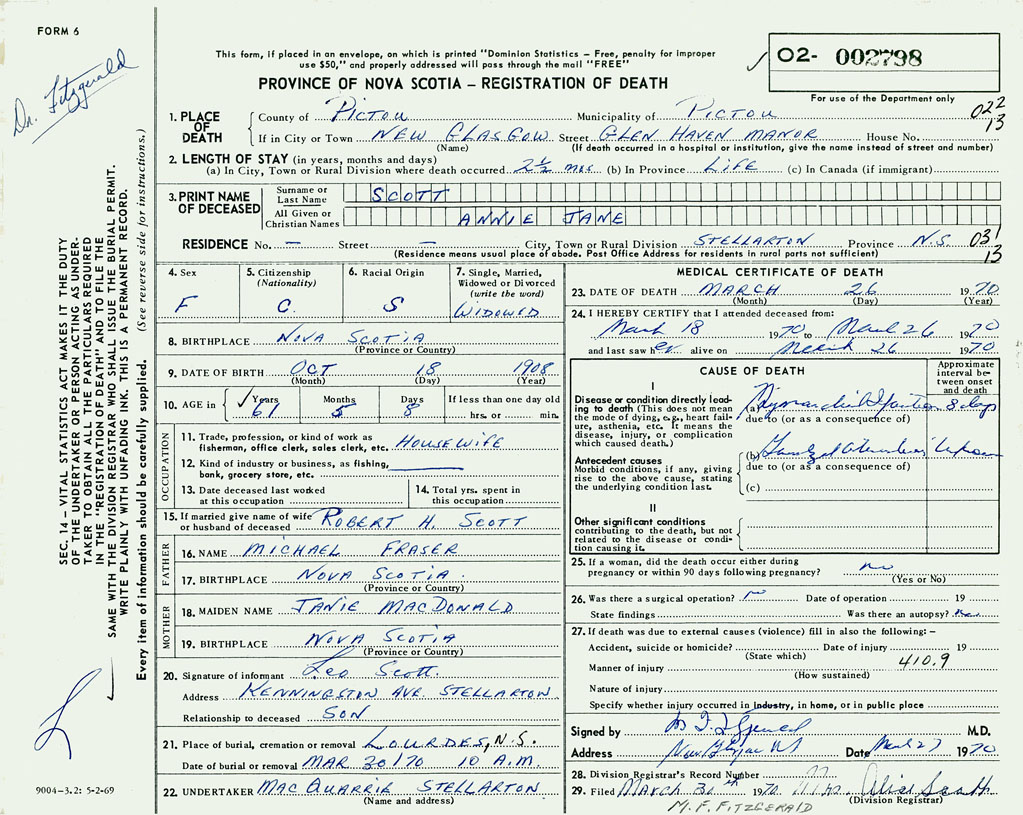 FORM 6
Dr. Fitzgerald
This form, if placed in an envelope, on which is printed "Dominion Statistics – Free, penalty for improper
use $50," and properly addressed will pass through the mail "FREE"
PROVINCE OF NOVA SCOTIA – REGISTRATION OF DEATH
02- 002798
For use of the Department only
022
13
1. PLACE OF DEATH
County of PICTOU Municipality of PICTOU
If in City or Town NEW GLASGOW Street GLEN HAVEN MANOR House No.
(Name) (If death occurred in a hospital or institution, give the name instead of street and number)
2. LENGTH OF STAY (in years, months and days)
(a) In City, Town or Rural Division where death occurred 2 1/2 mos (b) In Province LIFE (c) In Canada (if immigrant)
3. PRINT NAME OF DECEASED
Surname or Last Name SCOTT
All Given or Christian Names ANNIE JANE
RESIDENCE No. – Street – City, Town or Rural Division STELLARTON Province N.S. 031
13
(Residence means usual place of abode. Post Office Address for residents in rural parts not sufficient)
4. Sex F
5. Citizenship (Nationality) C.
6. Racial Origin S
7. Single, Married, Widowed or Divorced (write the word) WIDOWED
8. BIRTHPLACE NOVA SCOTIA
(Province or Country)
9. DATE OF BIRTH OCT 18 1908
(Month) (Day) (Year)
10. AGE in Years 61 Months 5 Days 8 If less than one day old
hrs. or min.
OCCUPATION
11. Trade, profession, or kind of work as fisherman, office clerk, sales clerk, etc. HOUSEWIFE
12. Kind of industry or business, as fishing, bank, grocery store, etc.
13. Date deceased last worked at this occupation
14. Total yrs. spent in this occupation
15. If married give name of wife or husband of deceased ROBERT H. SCOTT
FATHER
16. NAME MICHAEL FRASER
17. BIRTHPLACE NOVA SCOTIA
(Province or Country)
MOTHER
18. MAIDEN NAME JANIE MACDONALD
19. BIRTHPLACE NOVA SCOTIA
(Province or Country)
20. Signature of informant Leo Scott.
Address KENNINGSTON AVE. STELLARTON
Relationship to deceased SON
21. Place of burial, cremation or removal LOURDES, N.S.
Date of burial or removal MAR 30/70 10 A.M.
22. UNDERTAKER MACQUARRIE STELLARTON
(Name and address)
MEDICAL CERTIFICATE OF DEATH
23. DATE OF DEATH MARCH 26 1970
(Month) (Day) (Year)
24. I HEREBY CERTIFY that I attended deceased from:
March 18 1970 to March 26 1970
and last saw her alive on March 26 1970
CAUSE OF DEATH
Approximate interval between onset and death
I
Disease or condition directly leading to death (This does not mean the mode of dying, e.g., heart failure, asthenia, etc. It means the disease, injury, or complication which caused death.)
(a) Myocardial Infarction 8 days
due to (or as a consequence of)
Antecedent causes
Morbid conditions, if any, giving rise to the above cause, stating the underlying condition last.
(b)
due to (or as a consequence of)
(c)
II
Other significant conditions
contributing to the death, but not related to the disease or condition causing it.
25. If a woman, did the death occur either during
pregnancy or within 90 days following pregnancy? no
(Yes or No)
26. Was there a surgical operation? no Date of operation 19
State findings Was there an autopsy? no
27. If death was due to external causes (violence) fill in also the following: –
Accident, suicide or homicide? Date of injury 19
(State which)
410.9
Manner of injury
(How sustained)
Nature of injury
Specify whether injury occurred in industry, in home, or in public place
Signed by M.D.
Address New Glasgow NS Date March 27 1970
28. Division Registrar's Record Number
29. Filed March 30th 1970 Mrs. Alice Scott
(Division Registrar)
M. F. FITZGERALD
SEC. 14 – VITAL STATISTICS ACT MAKES IT THE DUTY
OF THE UNDERTAKER OR PERSON ACTING AS UNDER-
TAKER TO OBTAIN ALL THE PARTICULARS REQUIRED
IN THE "REGISTRATION OF DEATH" AND TO FILE THE
SAME WITH THE DIVISION REGISTRAR WHO SHALL ISSUE THE BURIAL PERMIT.
WRITE PLAINLY WITH UNFADING INK. THIS IS A PERMANENT RECORD.
Every item of information should be carefully supplied. (See reverse side for instructions.)
9004-3.2: 5-2-69